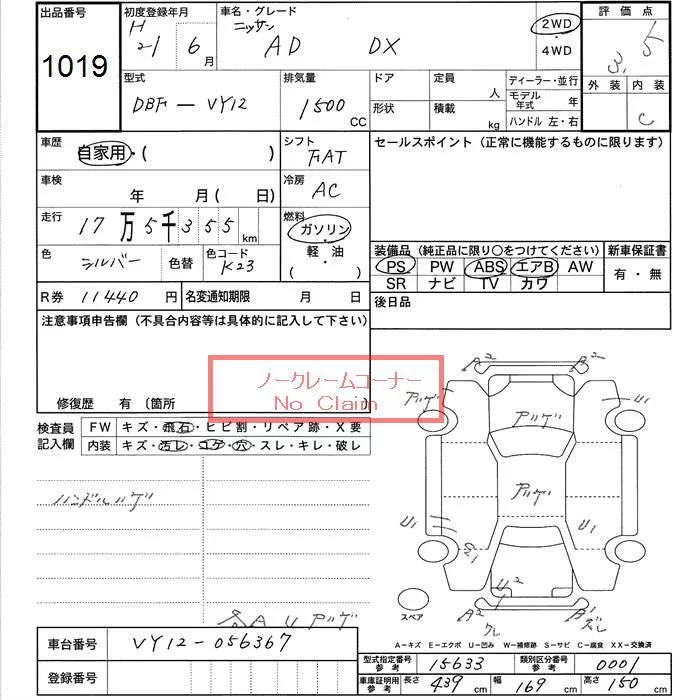 出品番号
1019
初度登録年月
H
21 6月
車名・グレード
ニッサン
AD DX
2WD
・
4WD
評価点
3.5
外装 内装
C
型式
DBF-VY12
排気量
1500
CC
ドア
形状
定員
人
積載
kg
ディーラー・並行
モデル年式 年
ハンドル 左・右
車歴
自家用・( )
シフト
FAT
セールスポイント(正常に機能するものに限ります)
車検
年 月( 日)
冷房
AC
走行
17万5千355km
燃料
ガソリン
・
軽・油
( )
色
シルバー
色替
色コード
K23
装備品(純正品に限り○をつけてください)
PS PW ABS エアB AW
SR ナビ TV カワ
新車保証書
有・無
R券 11440円
名変通知期限 月 日
後日品
注意事項申告欄(不具合内容等は具体的に記入して下さい)
ノークレームコーナー
No Claim
修復歴 有〔箇所
検査員
記入欄
FW キズ・飛石・ヒビ割・リペア跡・X要
内装 キズ・汚レ・コゲ・穴・スレ・キレ・破レ
ハンドルハゲ
A2 A2
アハゲ
U1
アハゲ
アハゲ
U1 U1
U2
A2 A1
スペア
A U アハゲ
A-キズ E-エクボ U-凹み W-補修跡 S-サビ C-腐食 XX-交換済
車台番号 VY12-056367
登録番号
型式指定番号
参考
15633
類別区分番号
参考
0001
車庫証明用
参考
長さ 439cm 幅 169cm 高さ 150cm